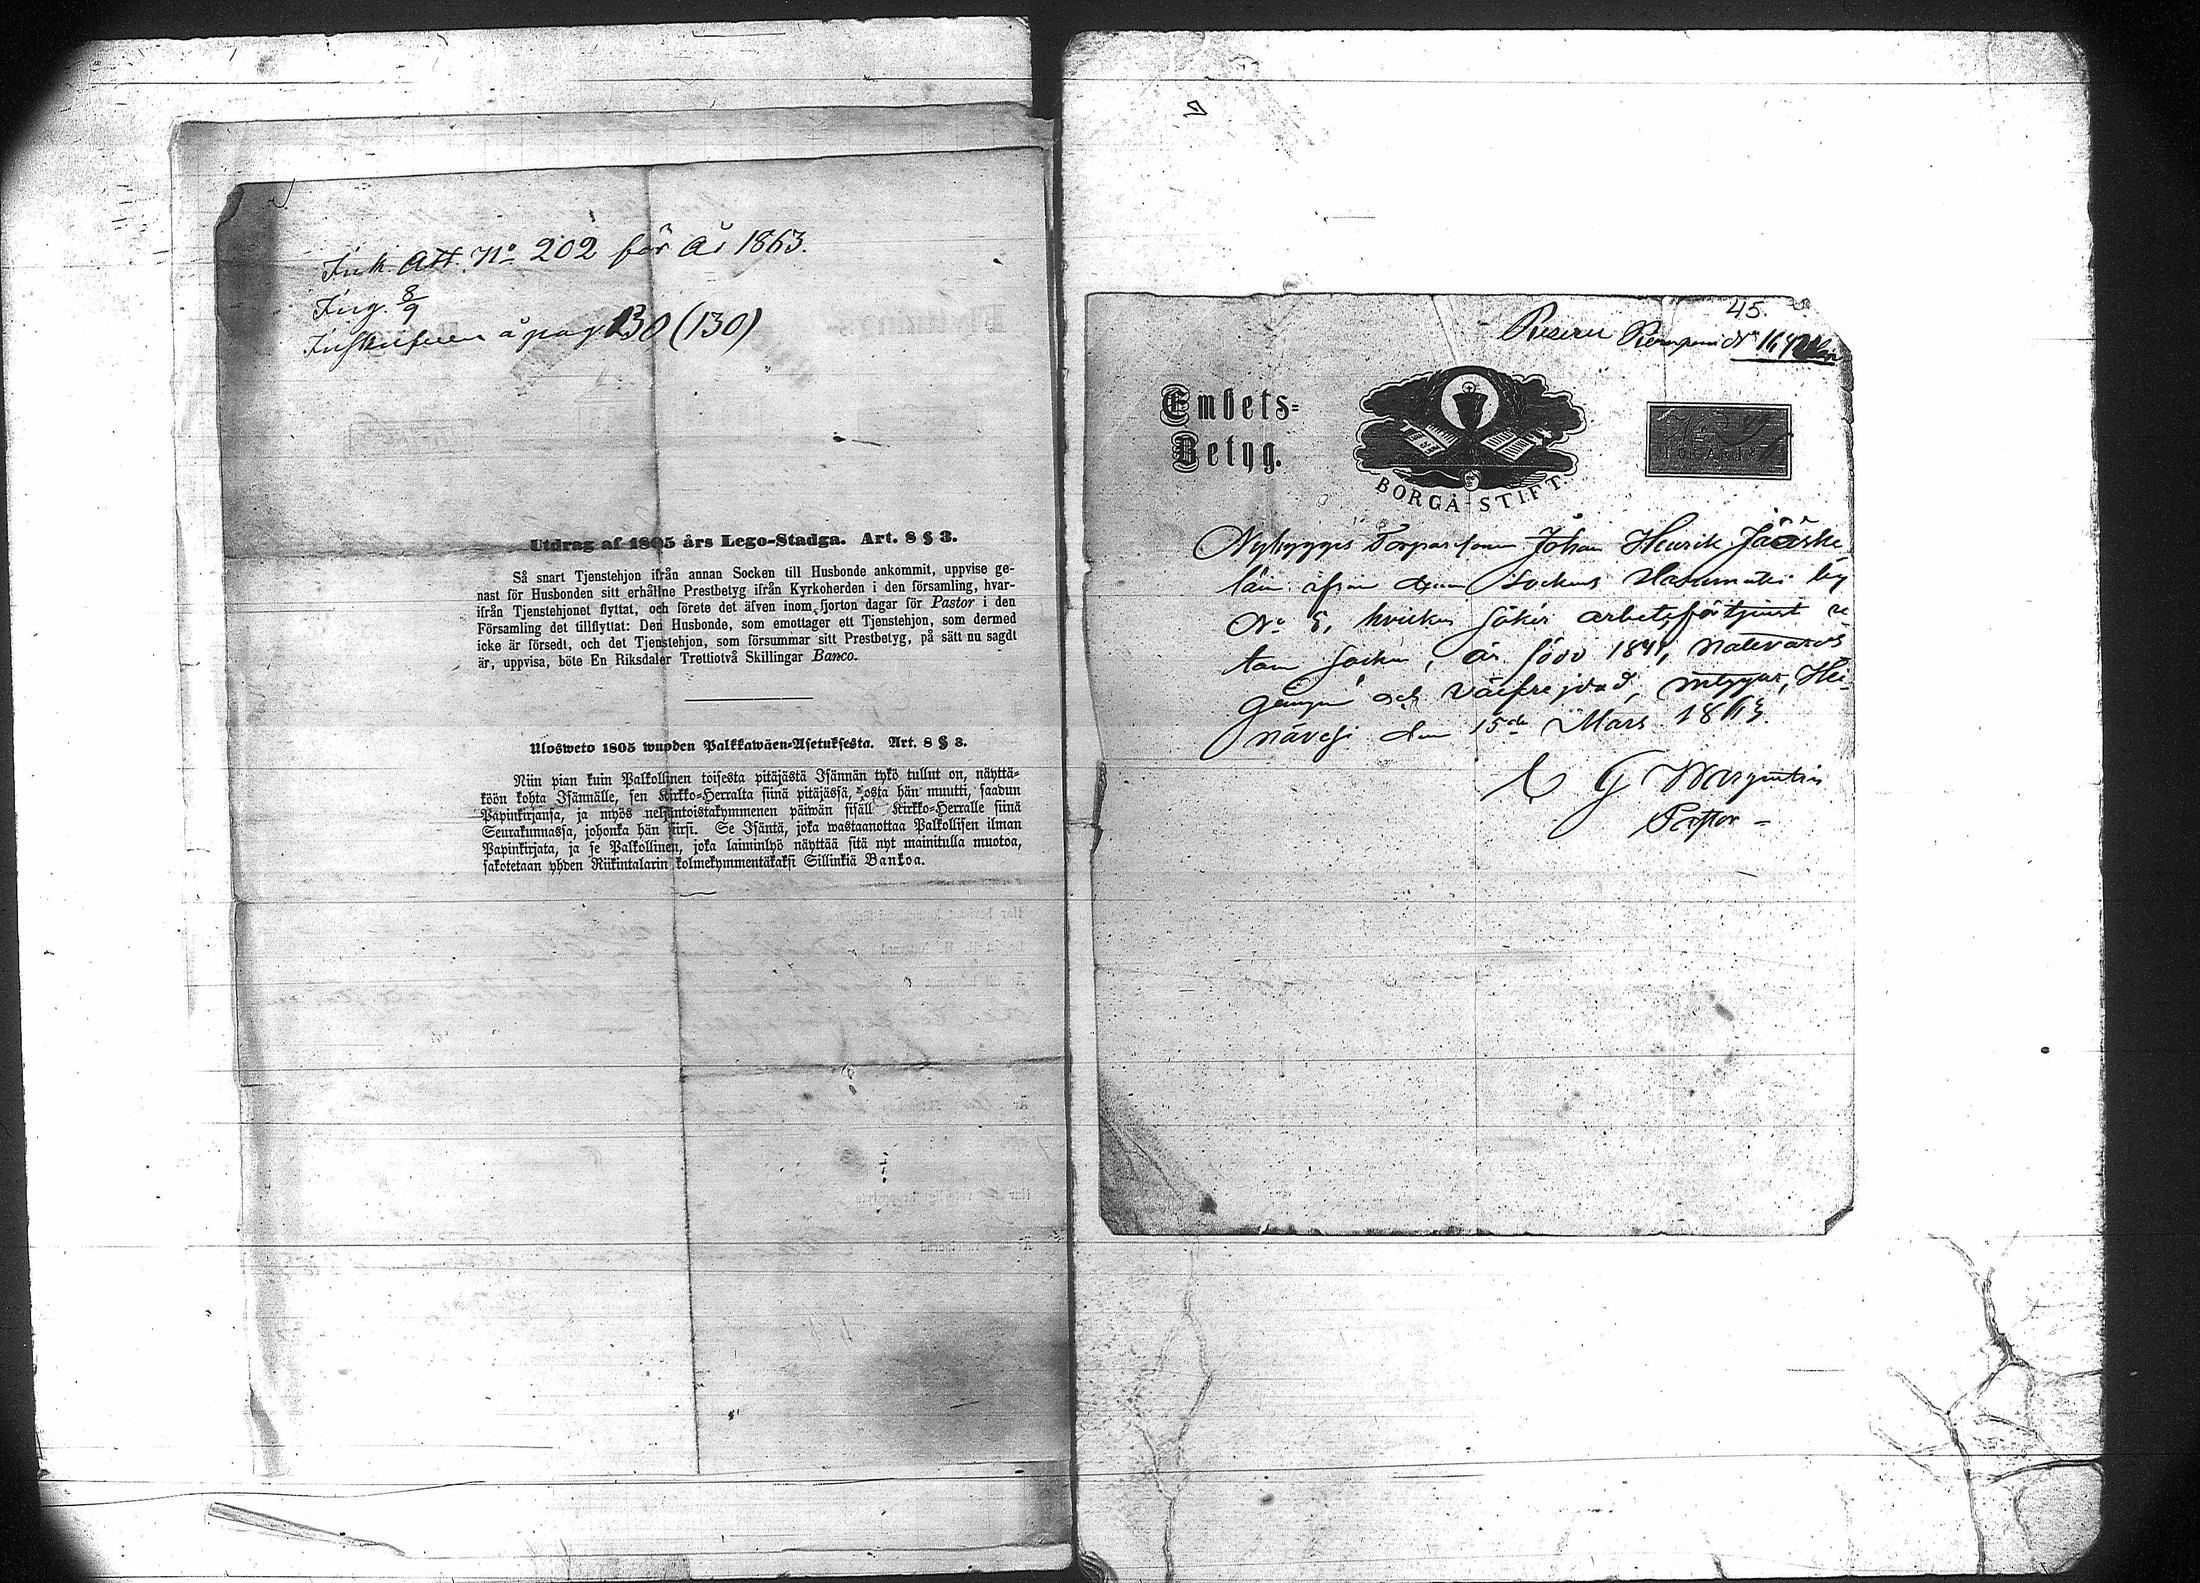 Ink. Att. No 202 för År 1863.
Ing. 8/9
Inskrifven å pag 130 (130)
Utdrag af 1805 års Lego-Stadga. Art. 8 § 3.
Så snart Tjenstehjon ifrån annan Socken till Husbonde ankommit, uppvise ge-
nast för Husbonden sitt erhållne Prestbetyg ifrån Kyrkoherden i den församling, hvar-
ifrån Tjenstehjonet flyttat, och förete det äfven inom fjorton dagar för Pastor i den
Församling det tillflyttat: Den Husbonde, som emottager ett Tjenstehjon, som dermed
icke är försedt, och det Tjenstehjon, som försummar sitt Prestbetyg, på sätt nu sagdt
är, uppvisa, böte En Riksdaler Trettiotvå Skillingar Banco.
Ulosweto 1805 wuoden Palkkawäen-Asetuksesta. Art. 8 § 3.
Niin pian kuin Palkollinen toisesta pitäjästä Isännän tykö tullut on, näyttä-
köön kohta Isännälle, sen Kirkko-Herralta siinä pitäjässä, josta hän muutti, saadun
Papinkirjansa, ja myös neljäntoistakymmenen päiwän sisäll Kirkko-Herralle siinä
Seurakunnassa, johonka hän siirsi. Se Isäntä, joka wastaanottaa Palkollisen ilman
Papinkirjata, ja se Palkollinen, joka laiminlyö näyttää sitä nyt mainitulla muotoa,
sakotetaan yhden Riikintalarin kolmekymmentäkaksi Sillinkiä Bankoa.
45.
Reserv No
Embets-
Betyg.
BORGÅ STIFT
Nybygges Torpare sonen Johan Henrik Jääske
läin ifrån denna Sockens by
No 8, hvilken söker arbetsförtjenst
tom socken, är född 1841, nattvards
gången och välfrejdad, intygar, Hei-
nävesi den 15de Mars 1863.
C G Wargentin
Pastor